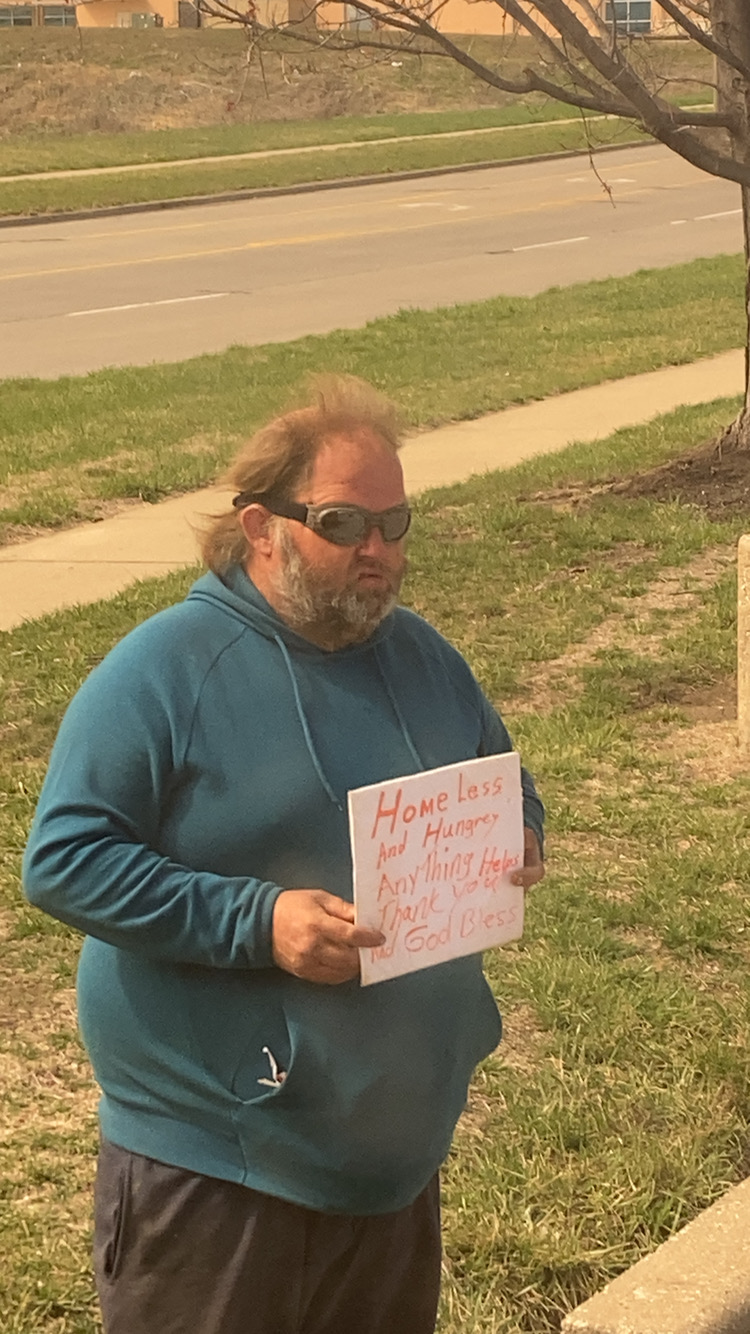 HomeLess
And Hungrey
AnyThing Helps
Thank you
And God Bless